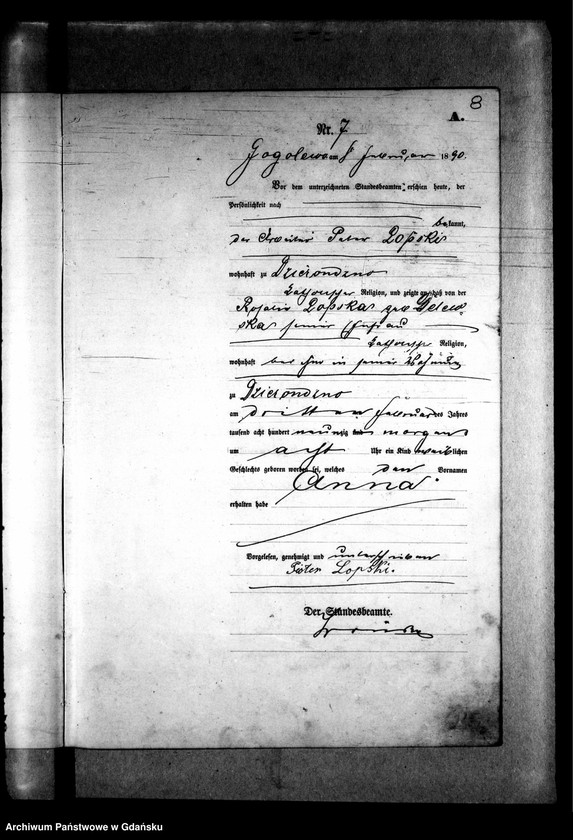 8
A.
Nr. 7
Gogolewo am 8 Februar 1890.
Vor dem unterzeichneten Standesbeamten erschien heute, der
Persönlichkeit nach
bekannt,
der Arbeiter Peter Lopski
wohnhaft zu Dzierondzno
katholischer Religion, und zeigte an, daß von der
Rosalie Lopska geb.
ska seiner Ehefrau
katholischer Religion,
wohnhaft bei ihm in seiner Wohnung
zu Dzierondzno
am dritten Februar des Jahres
tausend acht hundert neunzig morgens
um acht Uhr ein Kind weiblichen
Geschlechts geboren worden sei, welches den Vornamen
Anna
erhalten habe
Vorgelesen, genehmigt und unterschrieben
Peter Lopski.
Der Standesbeamte.
Archiwum Państwowe w Gdańsku